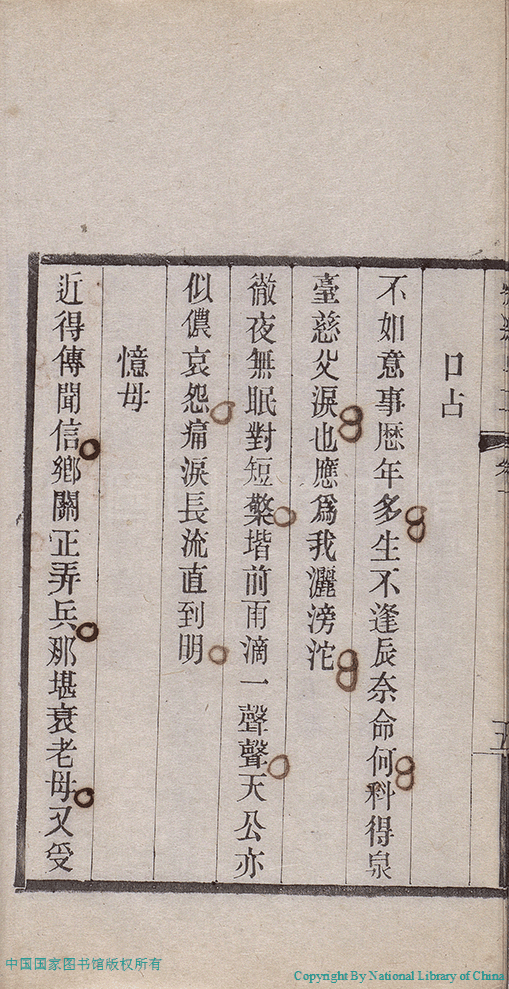 口占
不如意事歷年多生不逢辰奈命何料得泉
臺慈父淚也應爲我灑滂沱
徹夜無眠對短檠堦前雨滴一聲聲天公亦
似儂哀怨痛淚長流直到明
憶母
近得傳聞信鄉關正弄兵那堪衰老母又受
中国国家图书馆版权所有
Copyright By National Library of China